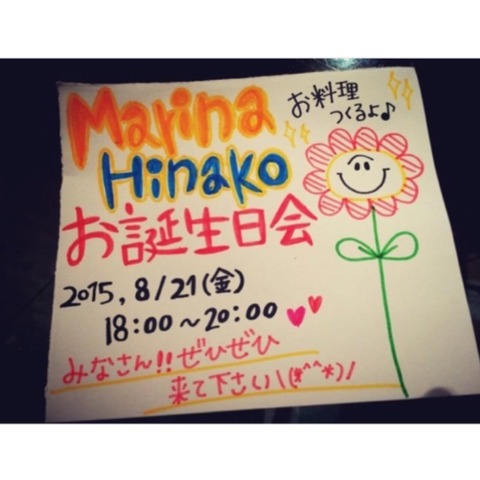 Marina
お料理
つくるよ♪
Hinako
お誕生日会
2015, 8/21(金)
18:00〜20:00
みなさん!!ぜひぜひ
来て下さい\(*^^*)/